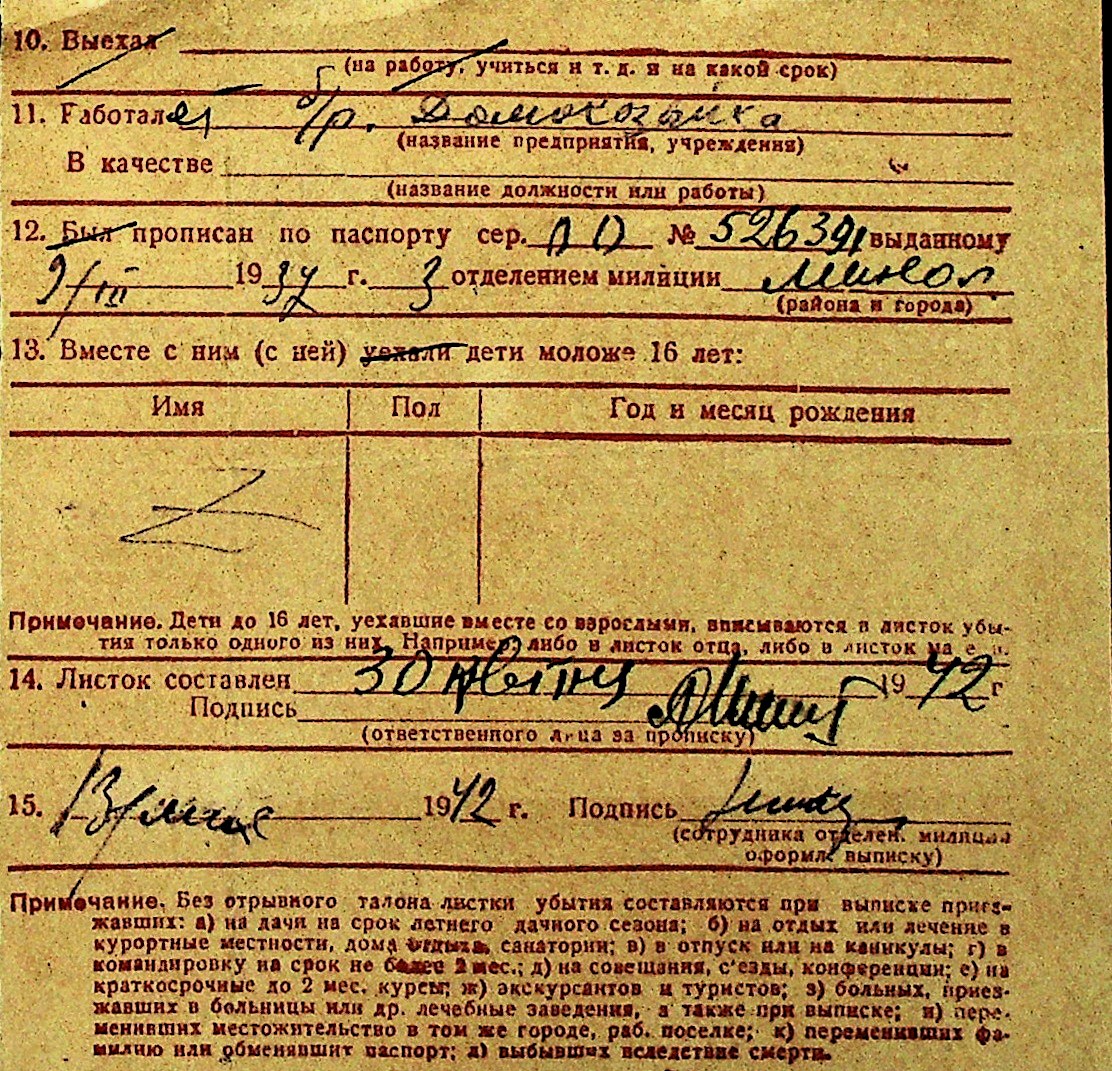 10. Выехал
(на работу, учиться и т. д. и на какой срок)
11. Работал ет б/р. Домохозяйка
(название предприятия, учреждения)
В качестве
(название должности или работы)
12. Был прописан по паспорту сер. ПО № 526391 выданному
9/III 1937 г. 3 отделением милиции
(района и города)
13. Вместе с ним (с ней) уехали дети моложе 16 лет:
Имя Пол Год и месяц рождения
Z
Примечание. Дети до 16 лет, уехавшие вместе со взрослыми, вписываются в листок убы-
тия только одного из них. Например, либо в листок отца, либо в листок ма е и.
14. Листок составлен 30 квітня 1942 г
Подпись
(ответственного лица за прописку)
15. 13/ 1942 г. Подпись
(сотрудника отделен. милиции
оформл. выписку)
Примечание. Без отрывного талона листки убытия составляются при выписке приез-
жавших: а) на дачи на срок летнего дачного сезона; б) на отдых или лечение в
курортные местности, дома отдыха, санатории; в) в отпуск или на каникулы; г) в
командировку на срок не более 2 мес.; д) на совещания, с'езды, конференции; е) на
краткосрочные до 2 мес. курсы; ж) экскурсантов и туристов; з) больных, приез-
жавших в больницы или др. лечебные заведения, а также при выписке; и) пере-
менивших местожительство в том же городе, раб. поселке; к) переменивших фа-
милию или обменявшит паспорт; л) выбывших вследствие смерти.